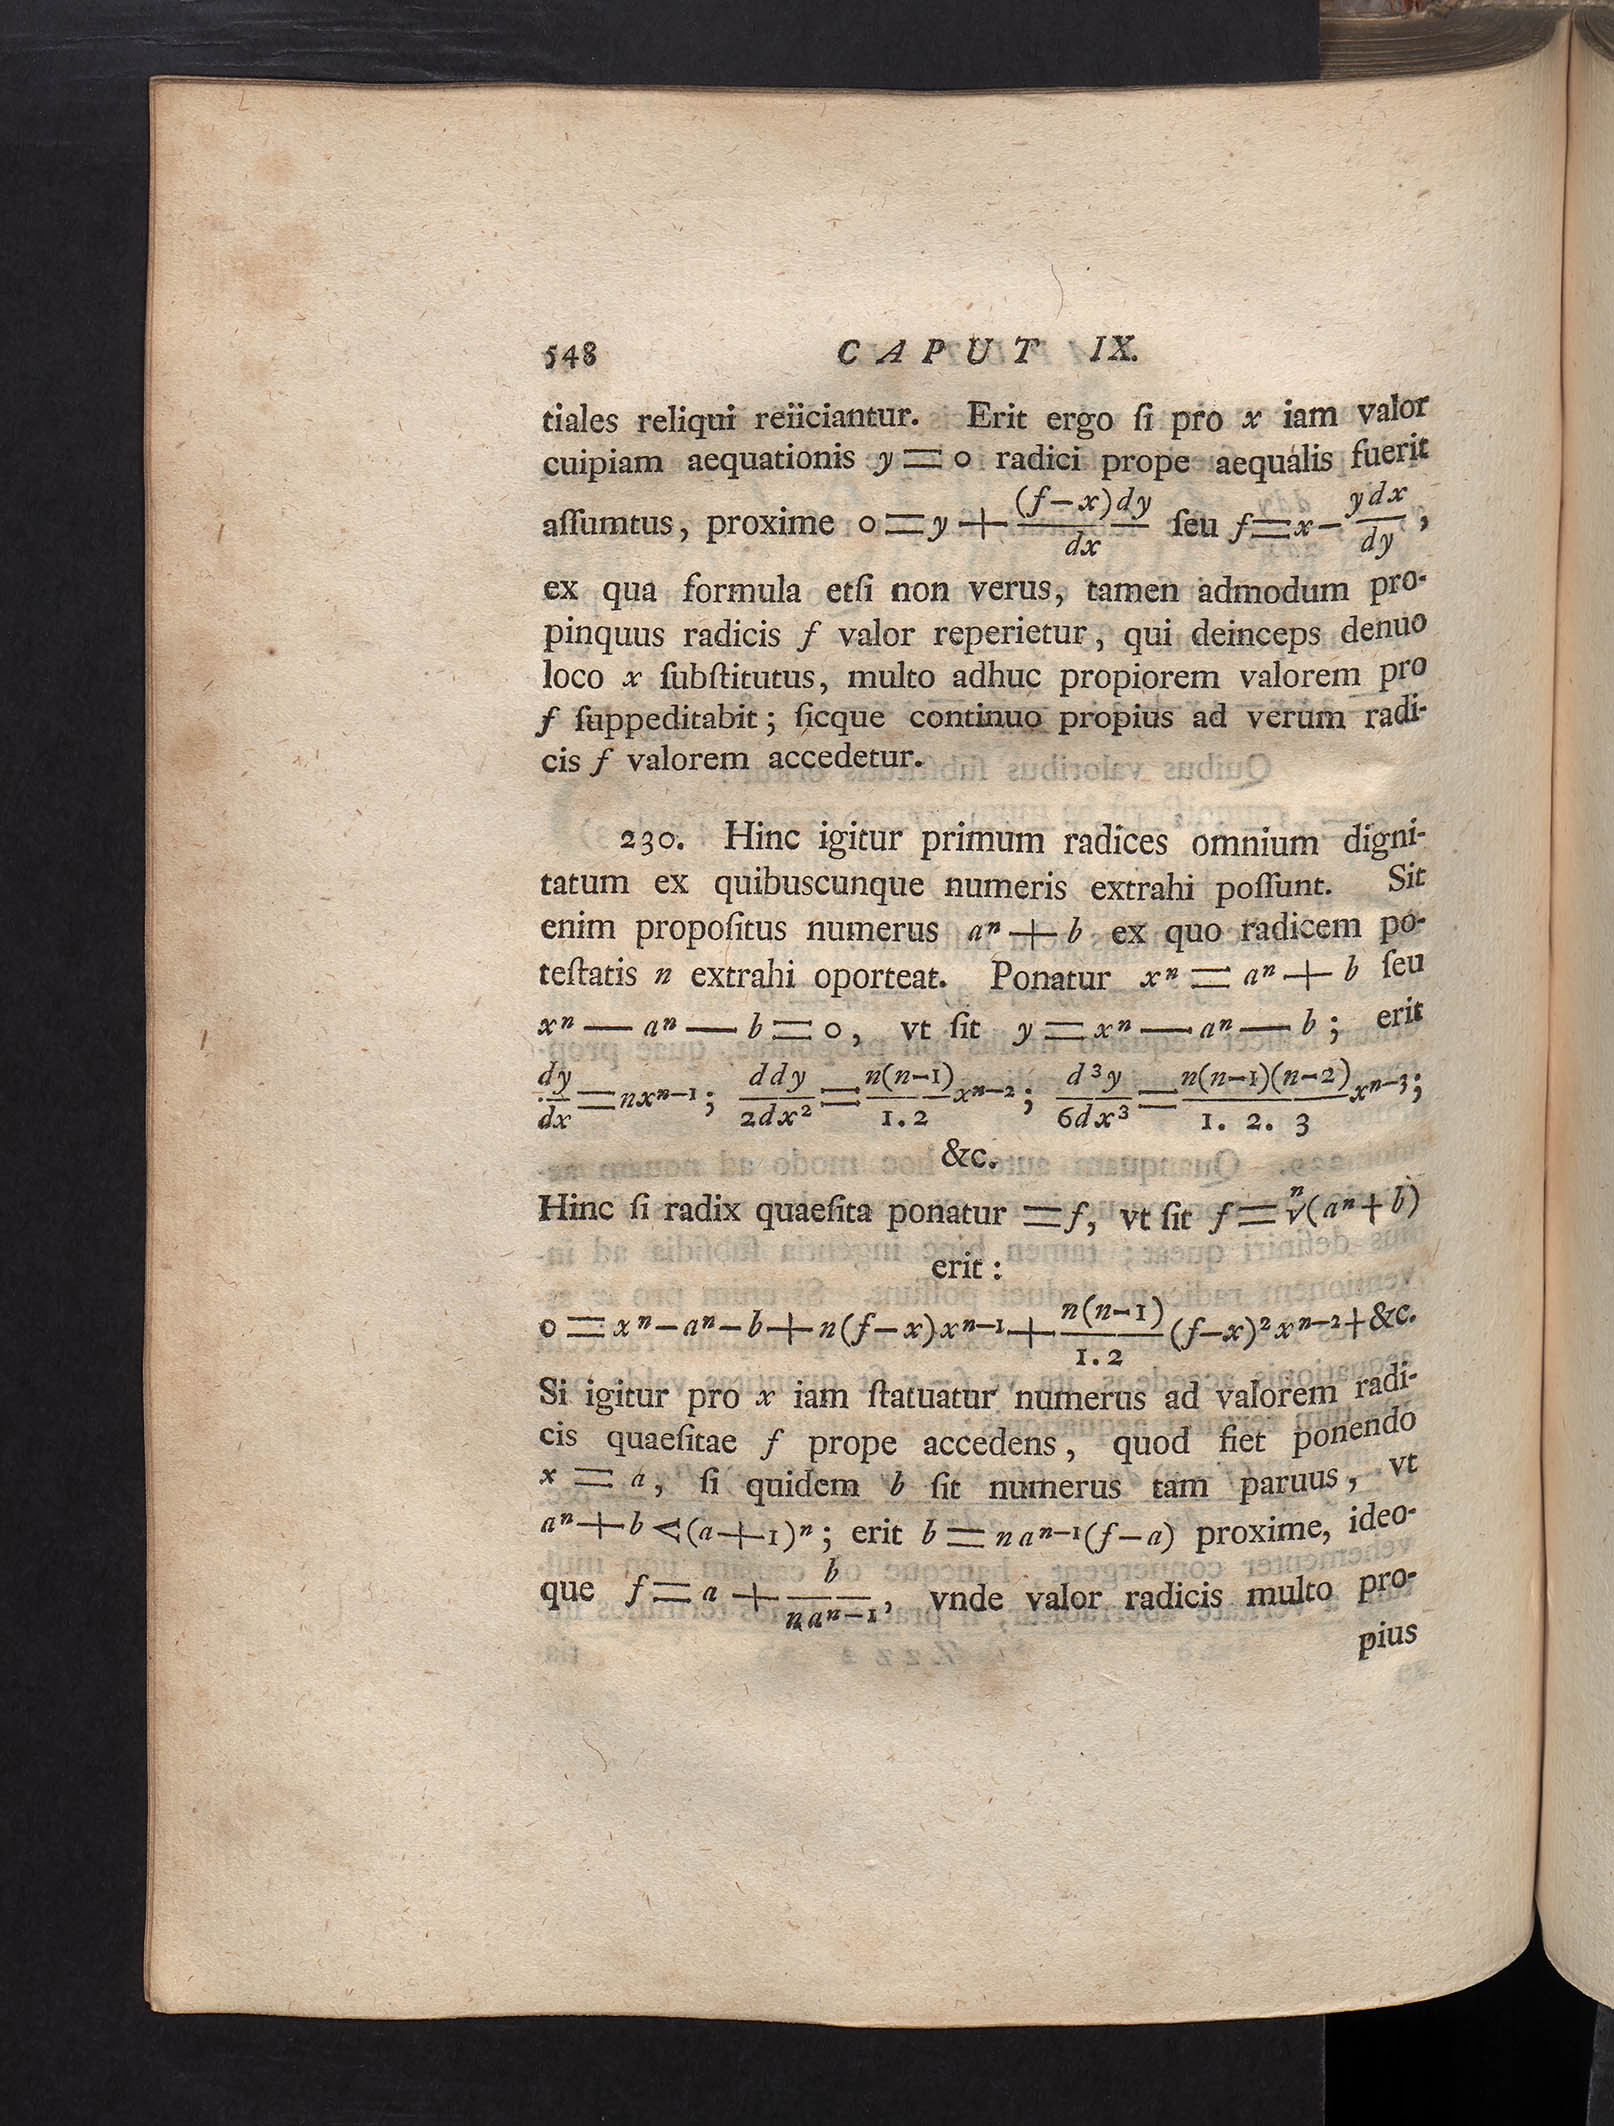 548 CAPUT IX.
tiales reliqui reiiciantur. Erit ergo ſi pro x iam valor
cuipiam aequationis y = 0 radici prope aequalis fuerit
aſſumtus, proxime 0 = y + (f − x)dy/dx ſeu f = x − ydx/dy,
ex qua formula etſi non verus, tamen admodum pro-
pinquus radicis f valor reperietur, qui deinceps denuo
loco x ſubſtitutus, multo adhuc propiorem valorem pro
f ſuppeditabit; ſicque continuo propius ad verum radi-
cis f valorem accedetur.
230. Hinc igitur primum radices omnium digni-
tatum ex quibuscunque numeris extrahi poſſunt. Sit
enim propoſitus numerus aⁿ + b ex quo radicem po-
teſtatis n extrahi oporteat. Ponatur xⁿ = aⁿ + b ſeu
xⁿ — aⁿ — b = 0, vt ſit y = xⁿ — aⁿ — b; erit
dy/dx = nxⁿ⁻¹; ddy/2dx² = n(n−1)/1.2 xⁿ⁻²; d³y/6dx³ = n(n−1)(n−2)/1. 2. 3 xⁿ⁻³;
&c.
Hinc ſi radix quaeſita ponatur = f, vt ſit f = ⁿ√(aⁿ + b)
erit:
0 = xⁿ − aⁿ − b + n(f − x)xⁿ⁻¹ + n(n−1)/1.2 (f−x)²xⁿ⁻² + &c.
Si igitur pro x iam ſtatuatur numerus ad valorem radi-
cis quaeſitae f prope accedens, quod fiet ponendo
x = a, ſi quidem b ſit numerus tam paruus, vt
aⁿ + b < (a + 1)ⁿ; erit b = naⁿ⁻¹(f − a) proxime, ideo-
que f = a + b/naⁿ⁻¹, vnde valor radicis multo pro-
pius